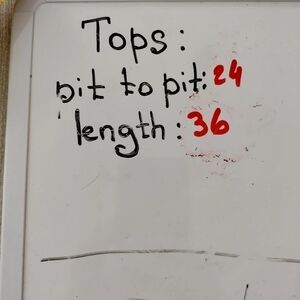 Tops:
pit to pit: 24
length: 36